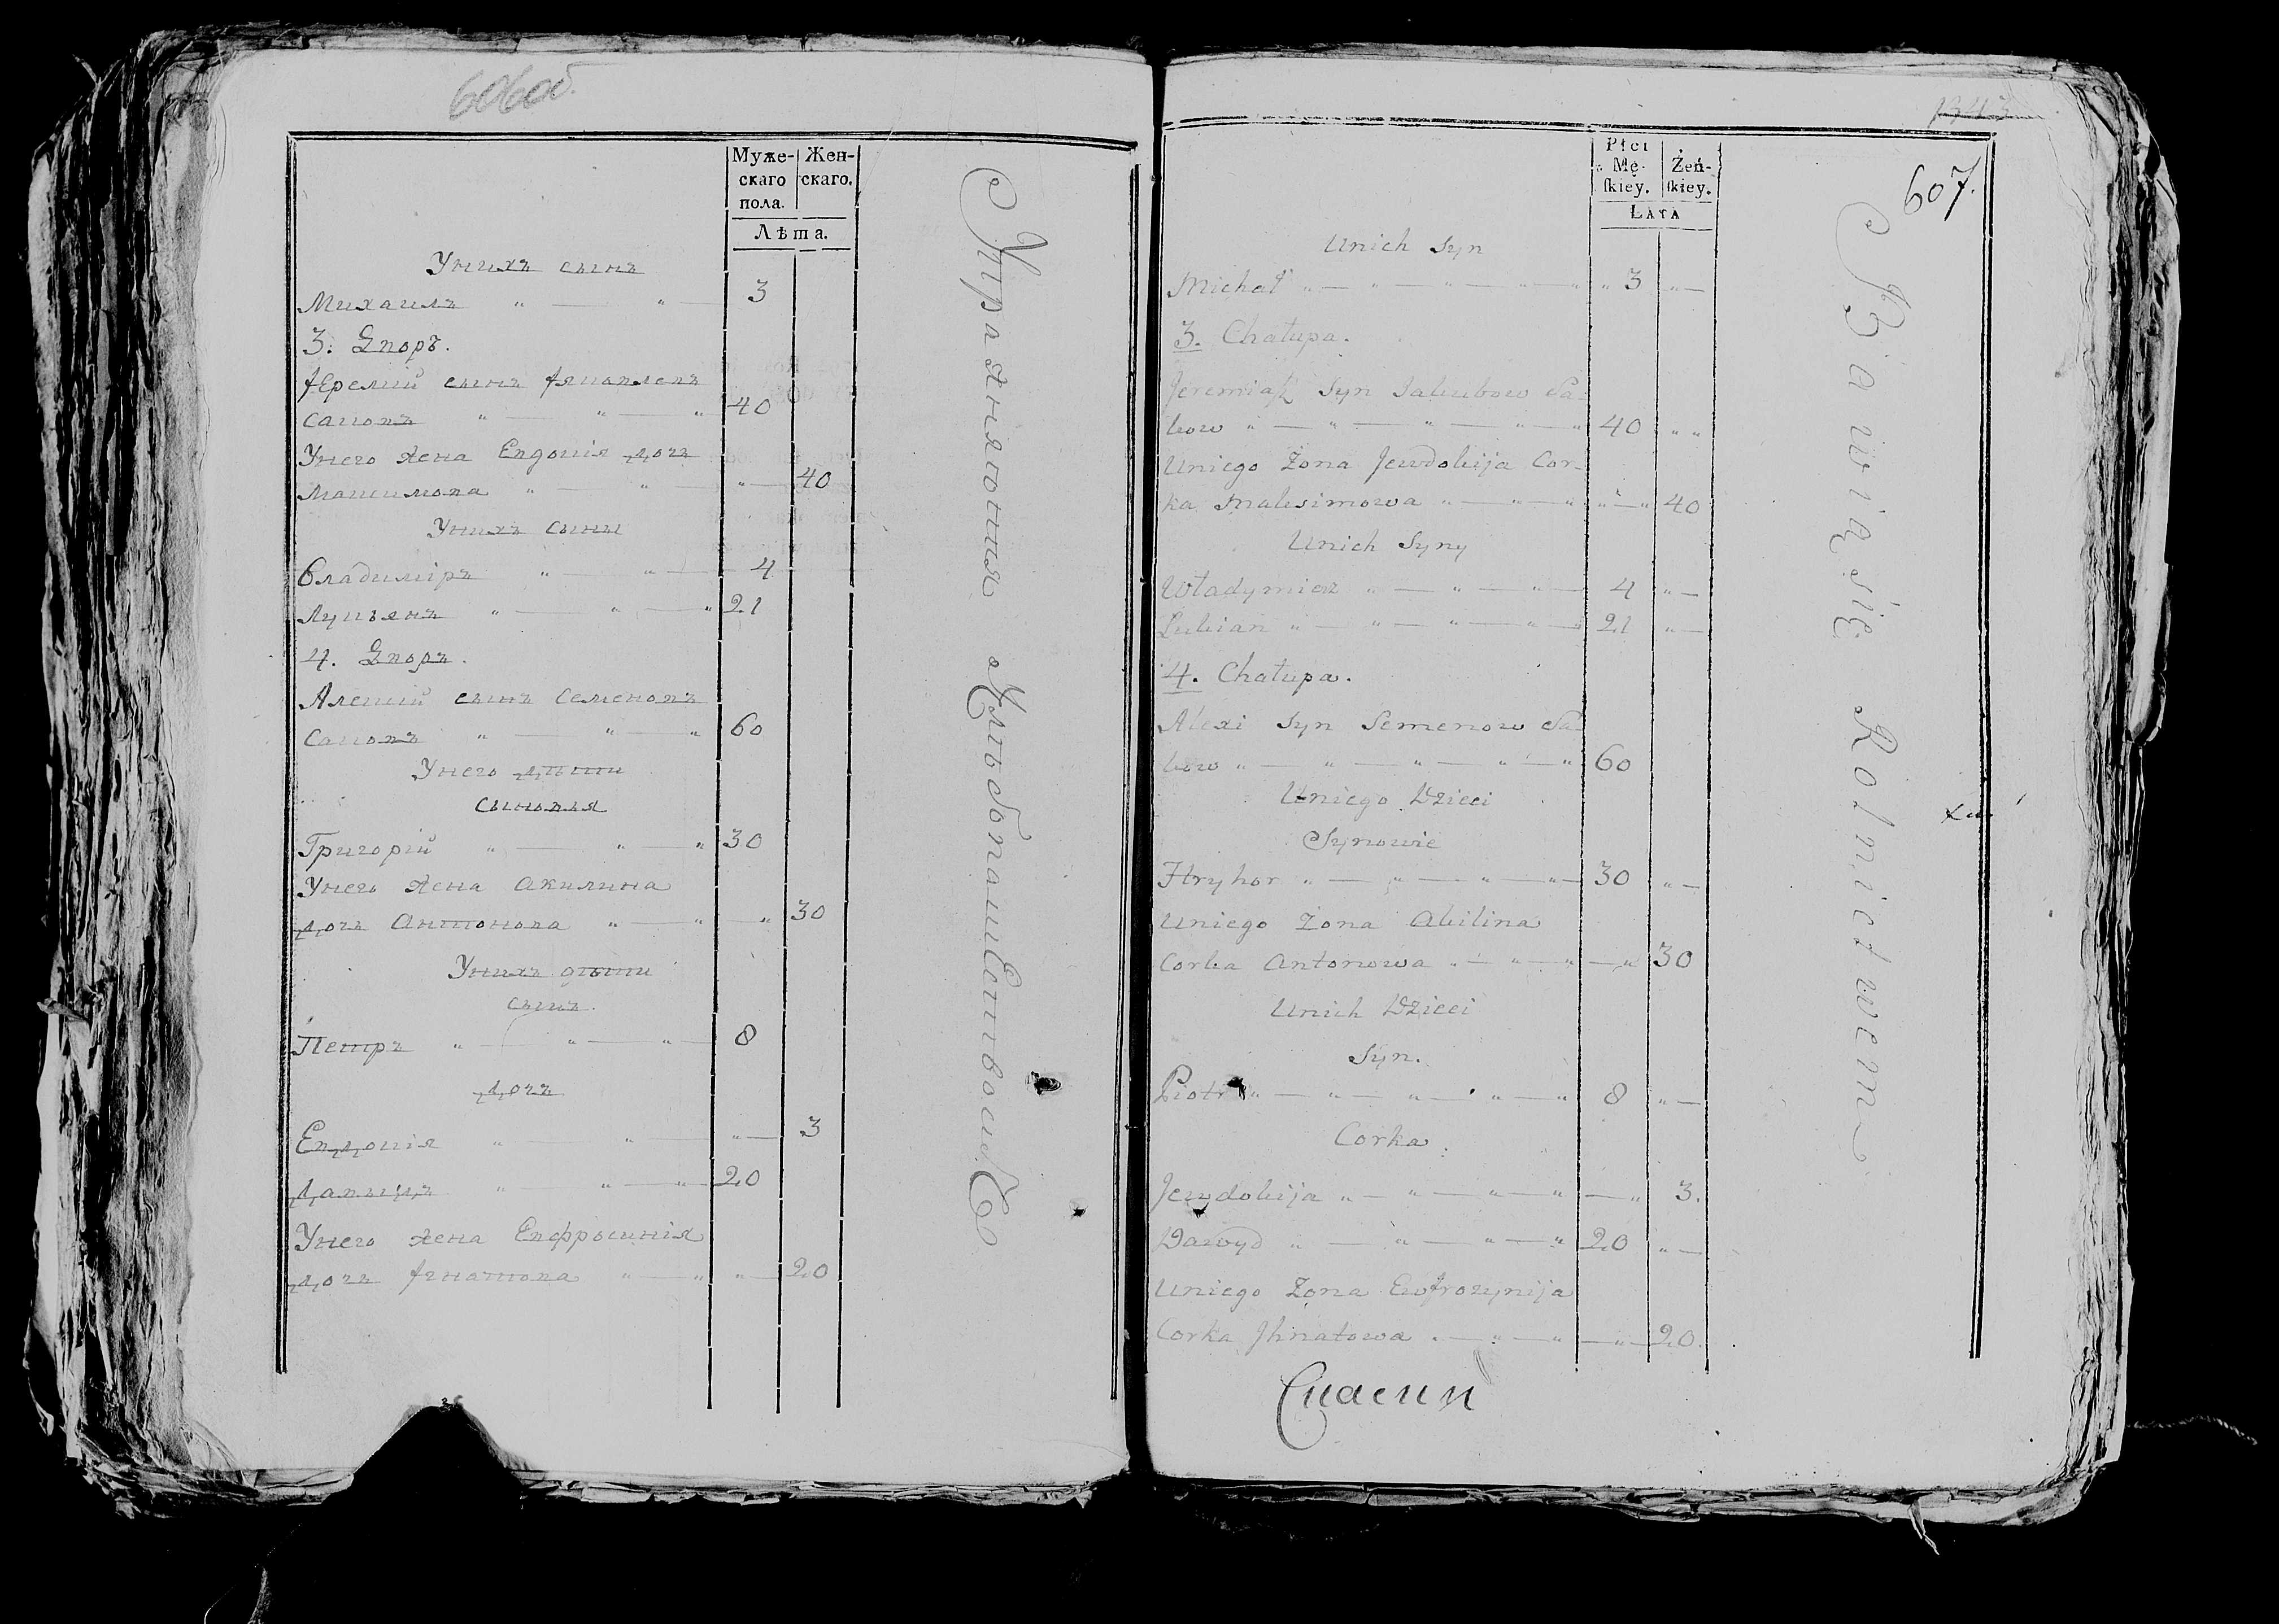 606об.
Муже-
скаго
пола.
Жен-
скаго.
Лѣта.
Унихъ сынъ
Михаилъ " — " — 3
3. Дворъ.
Іеремій сынъ Яковлевъ
Саковъ " — " — " 40
Унего жена Евдокія дочь
Максимова " — " — " — 40
Унихъ сыны
Владиміръ " — " — 4
Лукьянъ " — " — " 21
4. Дворъ.
Алексій сынъ Семеновъ
Саковъ " — " — " 60
Унего дѣти
сыновья
Григорій " — " — " 30
Унего жена Акилина
дочь Антонова " — " — " 30
Унихъ дѣти
сынъ.
Петръ " — " — " — 8
дочь
Евдокія " — " — " — 3
Давыдъ " — " — " 20
Унего жена Евфросинія
дочь Игнатова " — " " — 20
Упражняются Хлѣбопашествомъ
607.
Płci
Mę-
ſkiey.
Żeń-
ſkiey.
Lata
Unich Syn
Michał " — " — " — " — " " 3 " —
3. Chałupa.
Jeremiasz Syn Jakubow Sa-
kow " — " — " — " — " 40 " "
Uniego Żona Jewdokija Cor-
ka Maksimowa " — " — " " — " 40
Unich Syny
Władymierz " — " — " — 4 " —
Lukian " — " — " — " — " 21 " —
4. Chałupa.
Alexi Syn Semenow Sa-
kow " — " — " — " — " 60
Uniego Dzieci
Synowie
Hryhor " — " — " — " — 30 " —
Uniego Żona Akilina
Corka Antonowa " — " — " — " 30
Unich Dzieci
Syn.
Piotr " — " — " — " — " 8 " —
Corka.
Jewdokija " — " — " — " — " 3.
Dawyd " — " — " — " 20 " —
Uniego Żona Ewfrozynija
Corka Jhnatowa " — " — " — " — 20.
Bawią się Rolnictwem